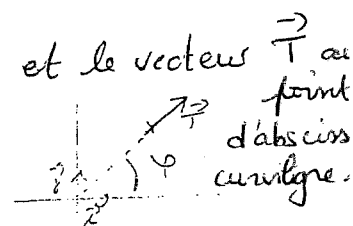 et le vecteur T⃗ au
point
T⃗
d'absciss
φ
curviligne.
j⃗
i⃗